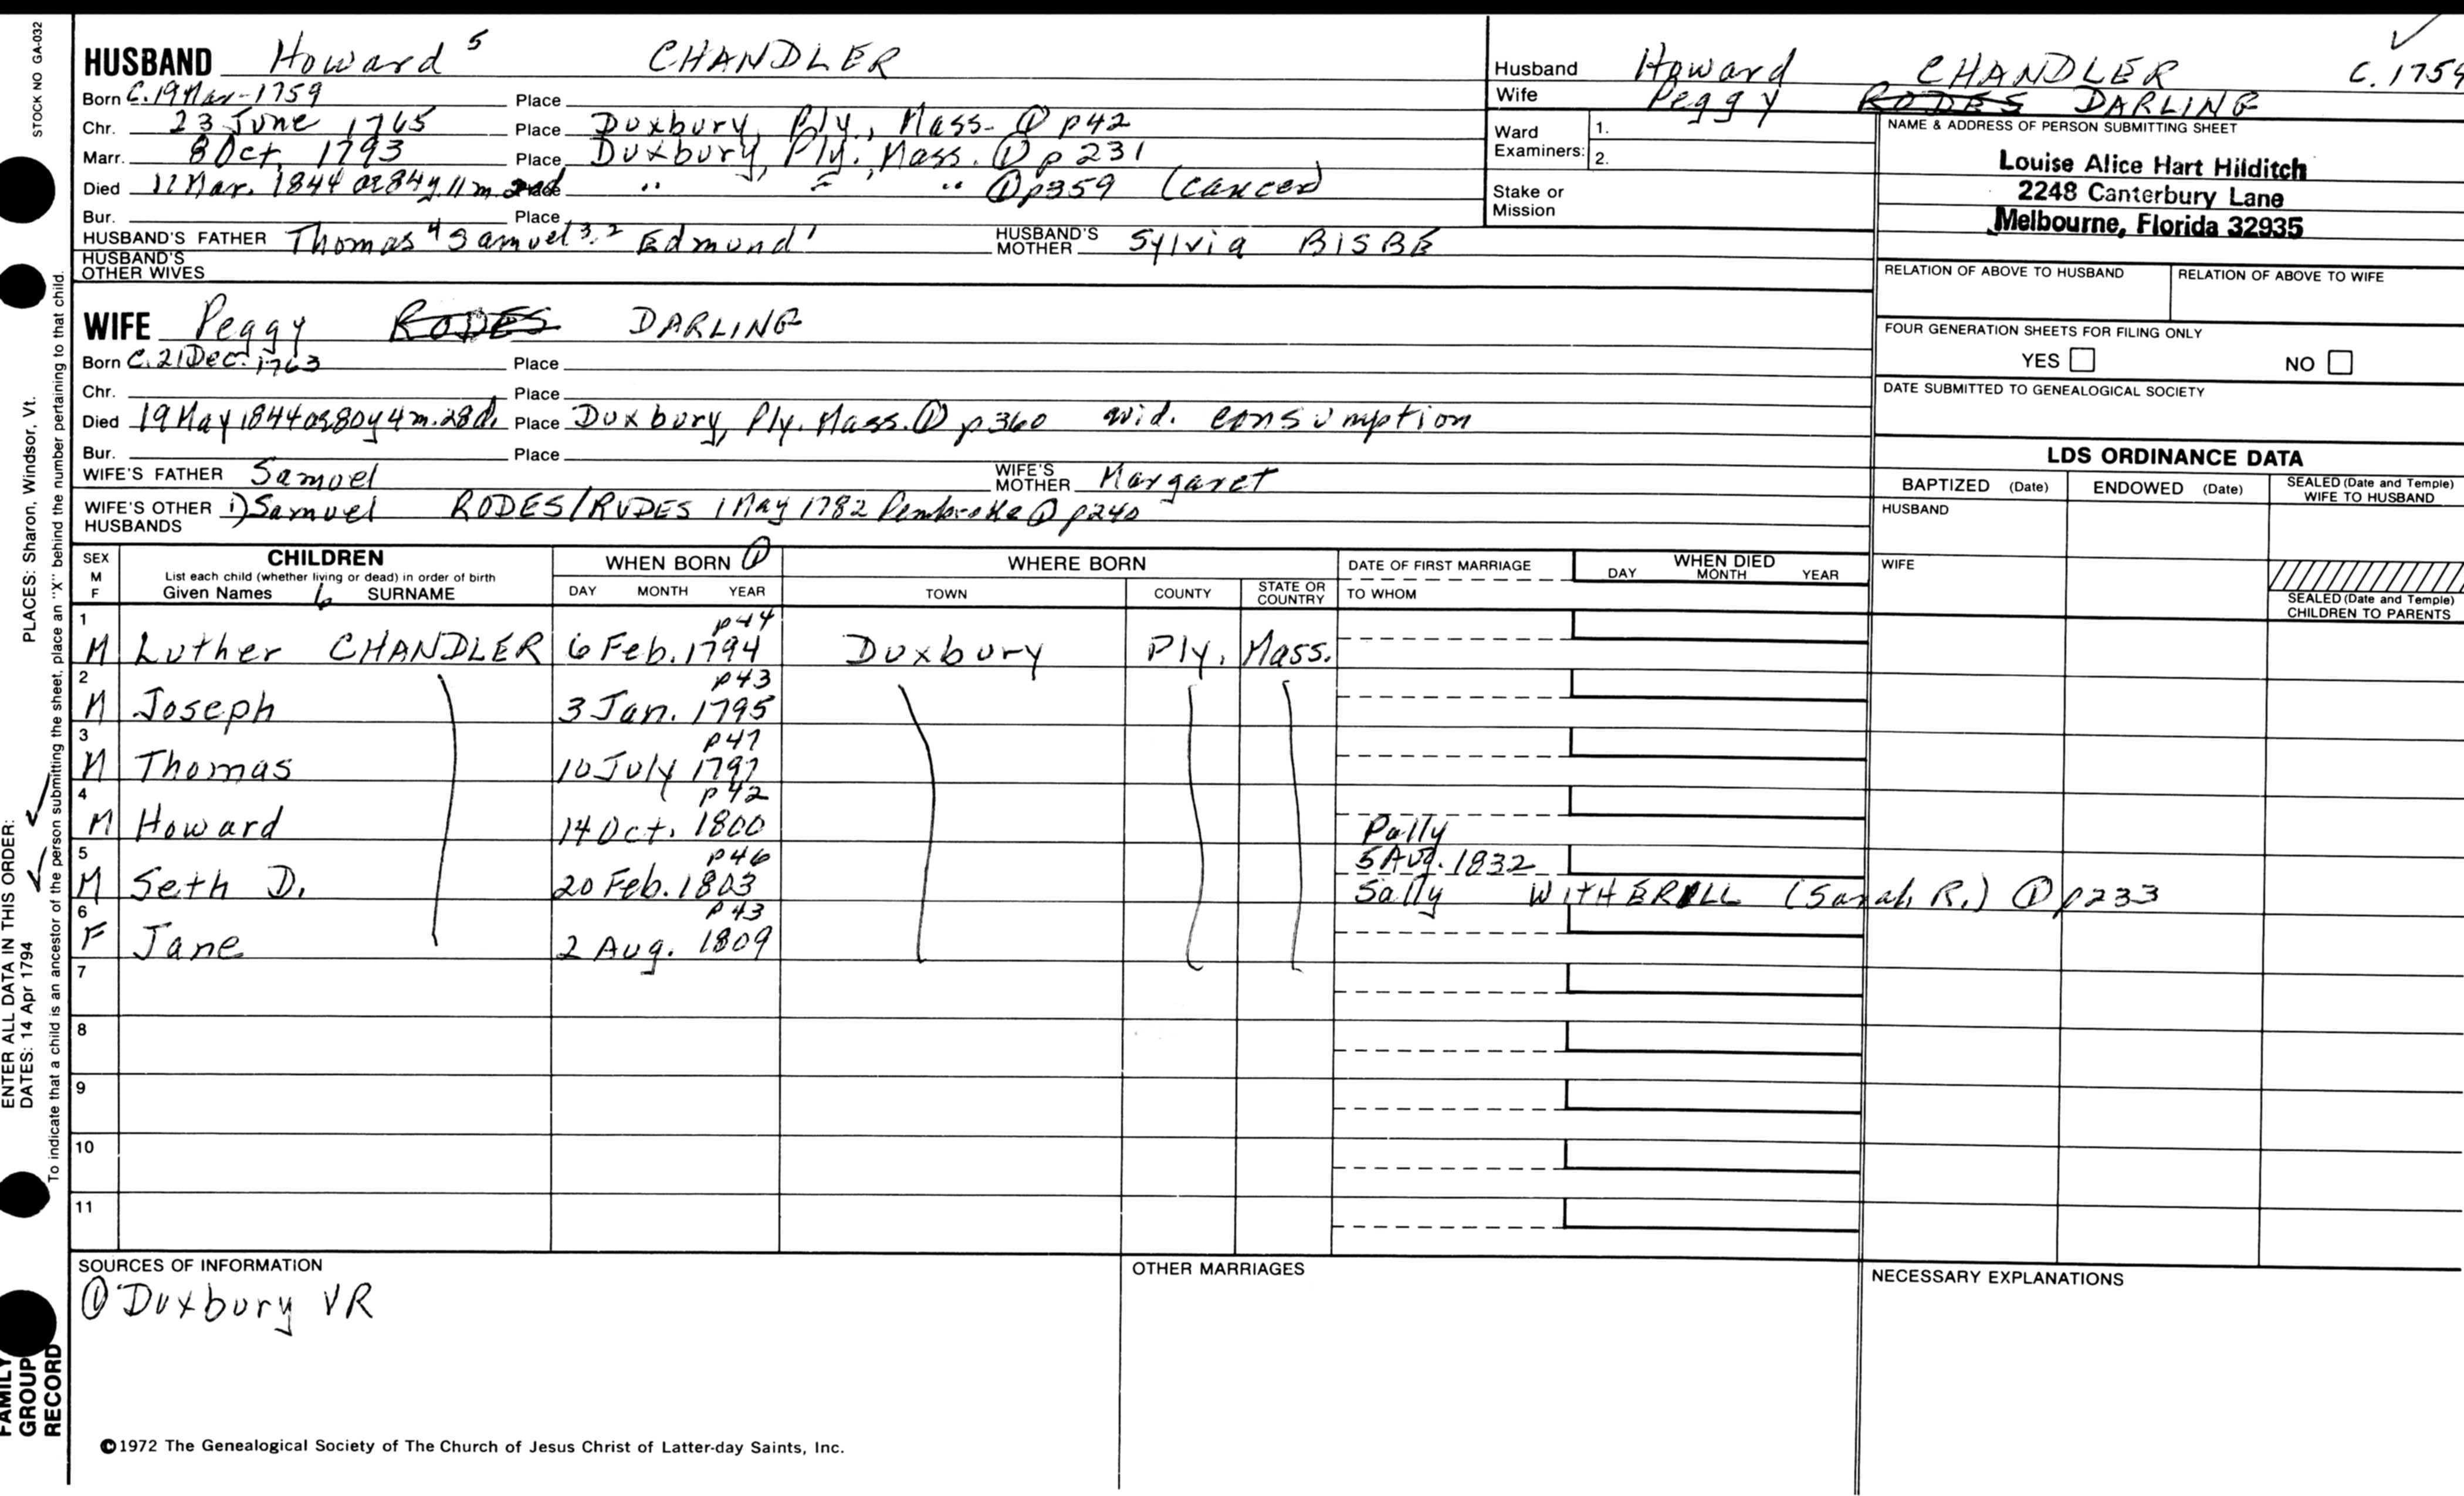 STOCK NO GA-032
HUSBAND Howard 5 CHANDLER
Born C. 19 Mar-1759 Place
Chr. 23 June 1765 Place Duxbury, Ply., Mass. ① p42
Marr. 8 Oct. 1793 Place Duxbury, Ply. Mass. ① p 231
Died 11 Mar. 1844 ae 84y. 11m. Place " " " ① p359 (cancer)
Bur. Place
HUSBAND'S FATHER Thomas 4 Samuel 3,2 Edmund 1 HUSBAND'S MOTHER Sylvia BISBE
HUSBAND'S OTHER WIVES
WIFE Peggy RODES DARLING
Born C. 21 Dec. 1763 Place
Chr. Place
Died 19 May 1844 ae 80y 4m. 28d. Place Duxbury, Ply. Mass. ① p360 wid. consumption
Bur. Place
WIFE'S FATHER Samuel WIFE'S MOTHER Margaret
WIFE'S OTHER HUSBANDS 1) Samuel RODES/RUDES 1 May 1782 Pembroke ① p240
Husband Howard CHANDLER C. 1759
Wife Peggy RODES DARLING
Ward Examiners: 1.
2.
Stake or Mission
NAME & ADDRESS OF PERSON SUBMITTING SHEET
Louise Alice Hart Hilditch
2248 Canterbury Lane
Melbourne, Florida 32935
RELATION OF ABOVE TO HUSBAND RELATION OF ABOVE TO WIFE
FOUR GENERATION SHEETS FOR FILING ONLY
YES NO
DATE SUBMITTED TO GENEALOGICAL SOCIETY
LDS ORDINANCE DATA
BAPTIZED (Date) ENDOWED (Date) SEALED (Date and Temple) WIFE TO HUSBAND
HUSBAND
WIFE
SEALED (Date and Temple) CHILDREN TO PARENTS
SEX M F CHILDREN WHEN BORN ① WHERE BORN DATE OF FIRST MARRIAGE WHEN DIED
List each child (whether living or dead) in order of birth
Given Names 6 SURNAME DAY MONTH YEAR TOWN COUNTY STATE OR COUNTRY TO WHOM DAY MONTH YEAR
1 p44
M Luther CHANDLER 6 Feb. 1794 Duxbury Ply. Mass.
2 p43
M Joseph 3 Jan. 1795
3 p47
M Thomas 10 July 1797
4 p42
M Howard 14 Oct. 1800 Polly
5 p46 5 Aug. 1832
M Seth D. 20 Feb. 1803 Sally WITHERELL (Sarah R.) ① p233
6 p43
F Jane 2 Aug. 1809
7
8
9
10
11
SOURCES OF INFORMATION
① Duxbury VR
OTHER MARRIAGES
NECESSARY EXPLANATIONS
©1972 The Genealogical Society of The Church of Jesus Christ of Latter-day Saints, Inc.
ENTER ALL DATA IN THIS ORDER:
DATES: 14 Apr 1794 PLACES: Sharon, Windsor, Vt.
To indicate that a child is an ancestor of the person submitting the sheet, place an "X" behind the number pertaining to that child.
FAMILY
GROUP
RECORD